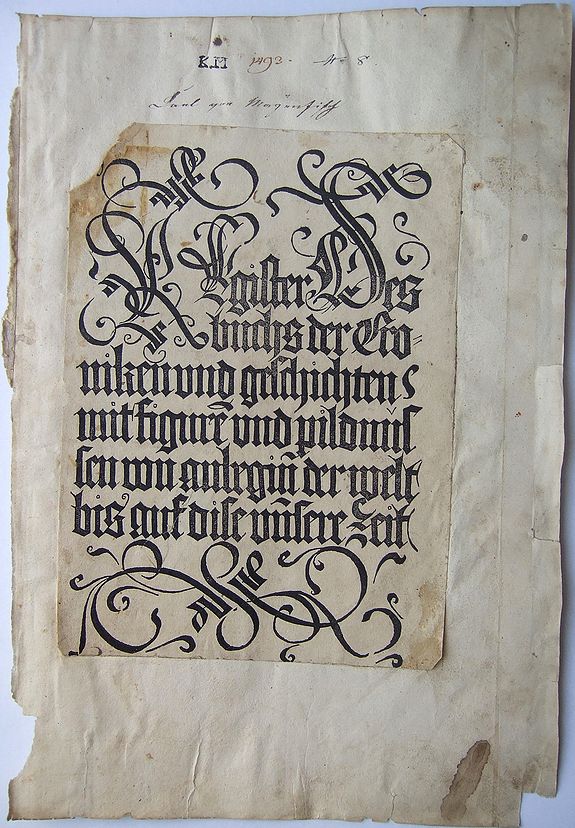 KM 1493. No 8.
Carl von Mayenfisch
Register Des
buchs der Cro-
niken und geschichten
mit figurē und pildnus
sen von anbegiñ der welt
bis auf dise uñsere Zeit